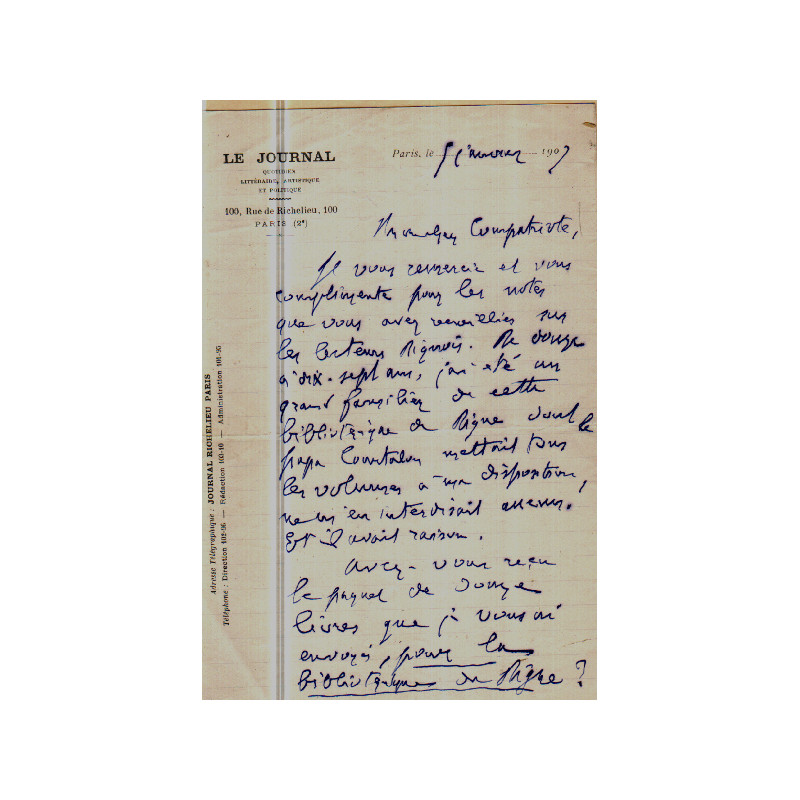 LE JOURNAL
QUOTIDIEN
LITTÉRAIRE, ARTISTIQUE
ET POLITIQUE
100, Rue de Richelieu, 100
PARIS (2e)
Paris, le 5 janvier 1907
Mon cher Compatriote,
Je vous remercie et vous
complimente pour les notes
que vous avez recueillies sur
les lecteurs Dignois. De douze
à dix-sept ans, j'ai été un
grand familier de cette
bibliothèque de Digne dont le
papa mettait tous
les volumes à ma disposition,
ne m'en interdisait aucun.
Et il avait raison.
Avez-vous reçu
le paquet de douze
livres que je vous ai
envoyés, pour la
bibliothèque de Digne ?
Adresse Télégraphique : JOURNAL RICHELIEU PARIS
Téléphone : Direction 102-96 — Rédaction 103-10 — Administration 101-95